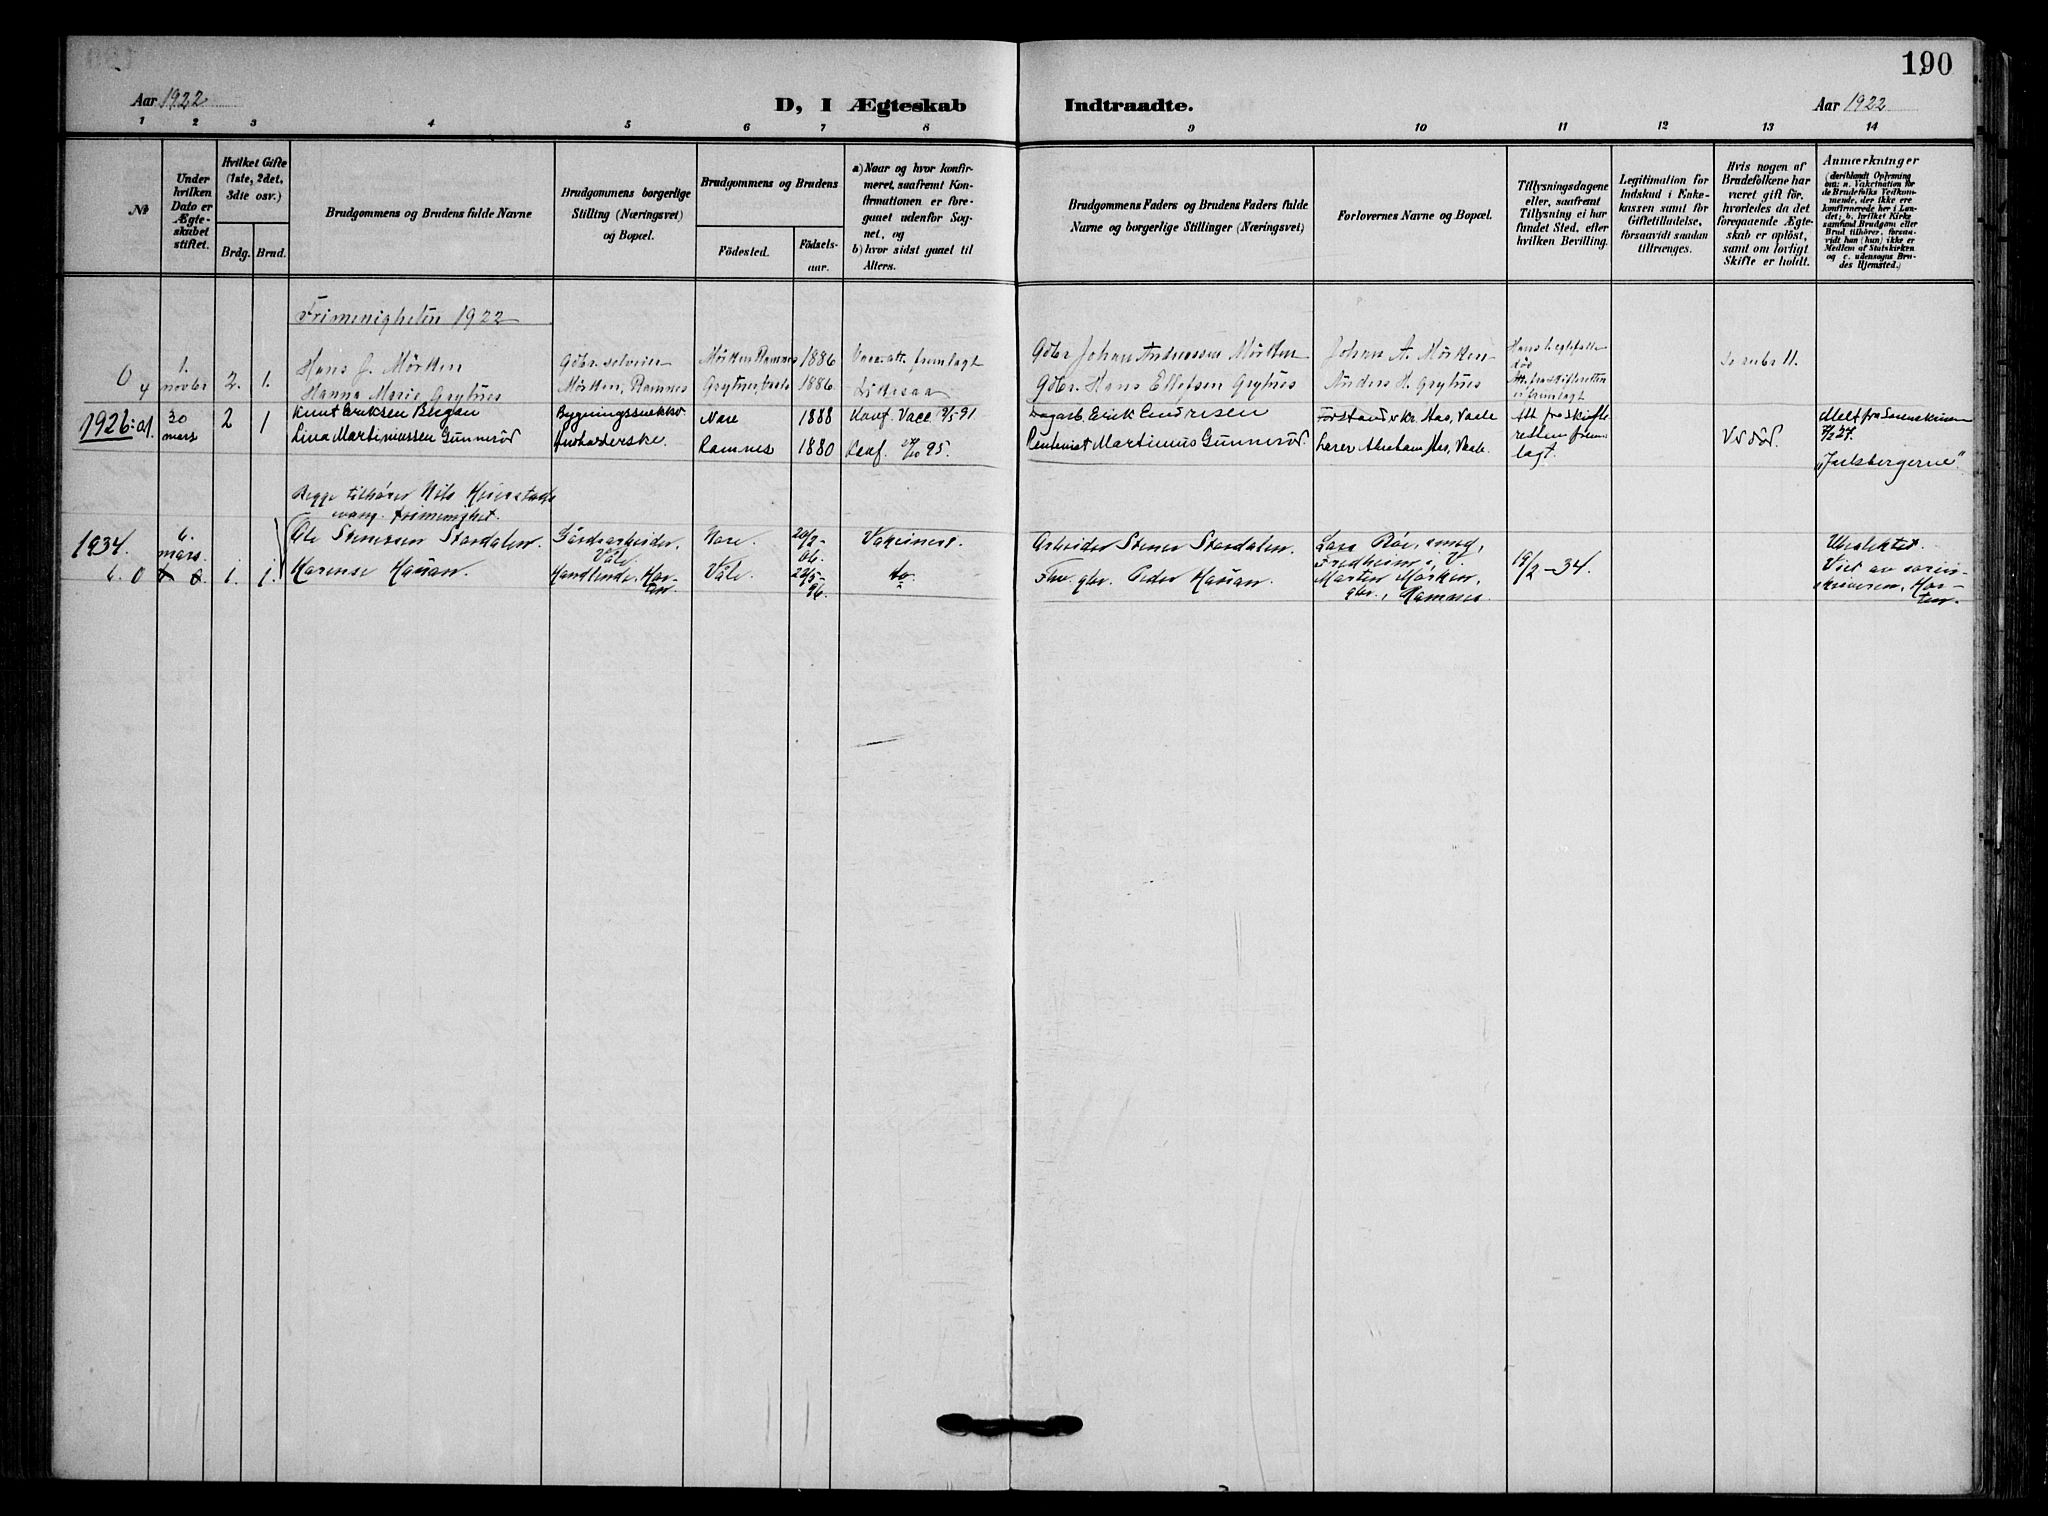 190
Aar 1922
D, I Ægteskab
Indtraadte.
Aar 1922
1 2 3 4 5 6 7 8 9 10 11 12 13 14
№
Under hvilken Dato er Ægteskabet stiftet.
Hvilket Gifte (1ste, 2det, 3die osv.)
Brdg. Brud.
Brudgommens og Brudens fulde Navne
Brudgommens borgerlige Stilling (Næringsvei) og Bopæl.
Brudgommens og Brudens
Födested.
Födsels-aar.
a) Naar og hvor konfirmeret, saafremt Konfirmationen er foregaaet udenfor Sognet, og
b) hvor sidst gaaet til Alters.
Brudgommens Faders og Brudens Faders fulde Navne og borgerlige Stillinger (Næringsvei)
Forlovernes Navne og Bopæl.
Tillysningsdagene eller, saafremt Tillysning ei har fundet Sted, efter hvilken Bevilling.
Legitimation for Indskud i Enkekassen samt for Giftetilladelse, forsaavidt saadan tiltrænges.
Hvis nogen af Brudefolkene har været gift før, hvorledes da det foregaaende Ægteskab er oplöst, samt om lovligt Skifte er holdt.
Anmærkninger (deriblandt Oplysning om: a. Vakcination for de Brudefolks Vedkommende, der ikke ere konfirmerede her i Landet; b. hvilket Kirkesamfund Brudgom eller Brud tilhører, forsaavidt han (hun) ikke er Medlem af Statskirken og c. udensogns Brudes Hjemsted.)
Frimenigheten 1922
0 4 1. novbr 2. 1.
Hans J. Mörken
Hanna Marie Grytnes
Gdbr. selveier
Mörken, Ramnes
Mörken Ramnes 1886
1886
Vacc. att. fremlagt
Gdbr Johan Andreassen Mörken
Gdbr. Hans Ellefsen Grytnes
Johan A. Mörken
Anders H. Grytnes
död
Att. fra skifteretten
ei fremlagt
Se rubr 11.
1926: 01. 30 mars 2 1
Knut Eriksen Bergan
Lina Martiniussen Gunneröd
Nore 1888
Ramnes 1880
Konf. 95.
Dagarb. Erick Endresen
Martinius Gunneröd.
Forstander Kr. Aas, Vaale
Lærer Abraham Aas, Vaale.
Att fra skifteretten fremlagt.
Ved död.
Melt fra Sorenskriveren
Begge tilhører Nils
evang. frimenighet.
1934. 6. mars. 1. 1.
6. 0
Ole Stenersen Stordalen.
Karense Hauan.
Gårdsarbeider, Våle
Handlende, Horten
Nore. 20/2-06.
Våle 22/5-96.
Vaksinert.
do
Arbeider Stener Stordalen.
Fhv. gbr. Peder Hauan.
Lars Röe, smed,
Fredheim i V.
Morten Mörken,
gbr., Ramnes.
19/2-34.
Ubeslektet.
Viet av sorenskriveren, Horten.